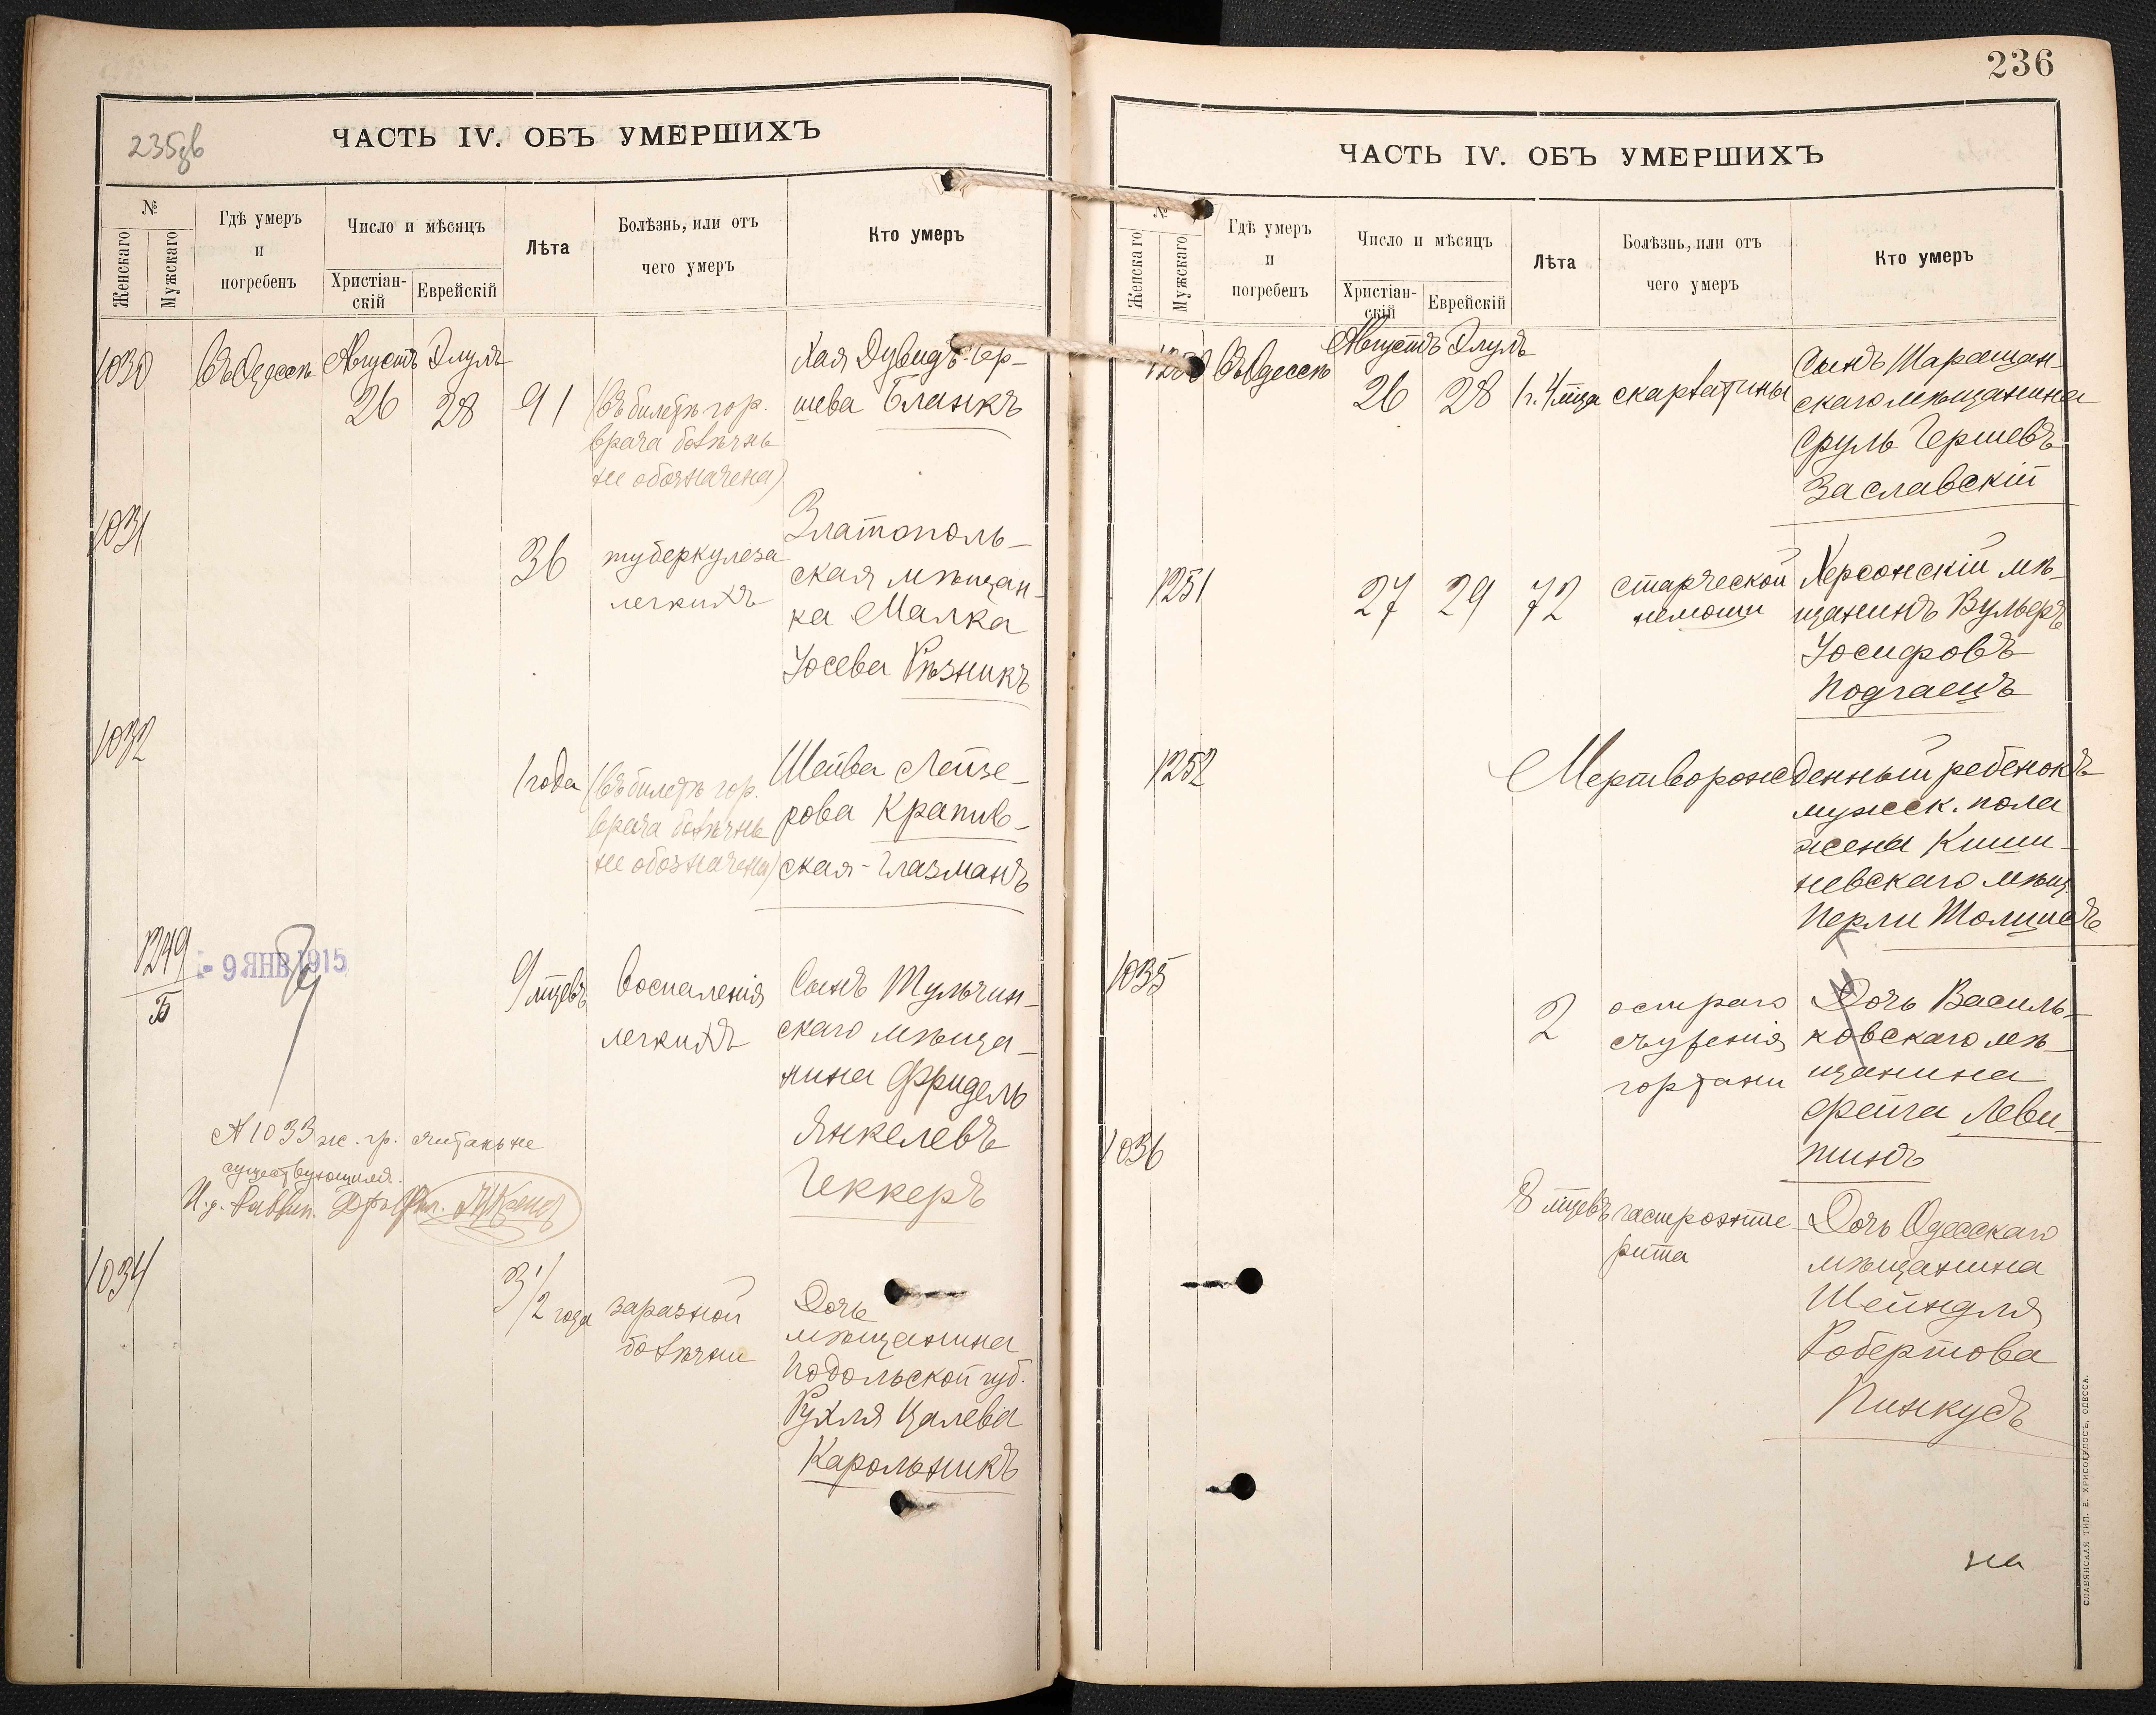 235зв
ЧАСТЬ IV. ОБЪ УМЕРШИХЪ
№
Женскаго
Мужскаго
Гдѣ умеръ
и
погребенъ
Число и мѣсяцъ
Христіан-
скій
Еврейскій
Лѣта
Болѣзнь, или отъ
чего умеръ
Кто умеръ
1030
Въ Одессѣ
Августъ
26
Элулъ
28
91
(въ билетѣ гор.
врача болѣзнь
не обозначена)
Хая Дувидъ-Гер-
шева Бланкъ
1031
36
туберкулеза
легкихъ
Златополь-
ская мѣщан-
ка Малка
Іосева Рѣзникъ
1032
1 года
(въ билетѣ гор.
врача болѣзнь
не обозначена)
Шейва Лейзе-
рова Крапив-
ская-Глазманъ
1249
Б
- 9 ЯНВ 1915
9 мцевъ
воспаленія
легкихъ
Сынъ Тульчин-
скаго мѣща-
нина Фридель
Янкелевъ
Геккеръ
№ 1033 ж. гр. читать не
существующимъ.
И. д. Раввин.
1034
3 1/2 года
заразной
болѣзни
Дочь
мѣщанина
Подольской губ.
Рухля Цалева
Карольникъ
236
ЧАСТЬ IV. ОБЪ УМЕРШИХЪ
№
Женскаго
Мужскаго
Гдѣ умеръ
и
погребенъ
Число и мѣсяцъ
Христіан-
скій
Еврейскій
Лѣта
Болѣзнь, или отъ
чего умеръ
Кто умеръ
1250
Въ Одессѣ
Августъ
26
Элулъ
28
1 г. 4 мца
скарлатины
Сынъ Таращан-
скаго мѣщанина
Сруль Гершевъ
Заславскій
1251
27
29
72
старческой
немощи
Херсонскій мѣ-
щанинъ Вульфъ
Іосифовъ
Подгаецъ
1252
Мертворожденный ребенокъ
мужск. пола
жены Киши-
невскаго мѣщ.
Перли Толмачъ
1035
2
остраго
съуженія
гортани
Дочь Василь-
ковскаго мѣ-
щанина
Фейга Леви-
тинъ
1036
8 мцевъ
гастроэнте-
рита
Дочь Одесскаго
мѣщанина
Шейндля
Робертова
Пинкусъ
на
СЛАВЯНСКАЯ ТИП. Е. ХРИСОГЕЛОСЪ, ОДЕССА.